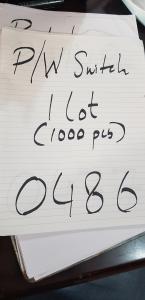 P/W Switch
1 Lot
(1000 pcs)
0486